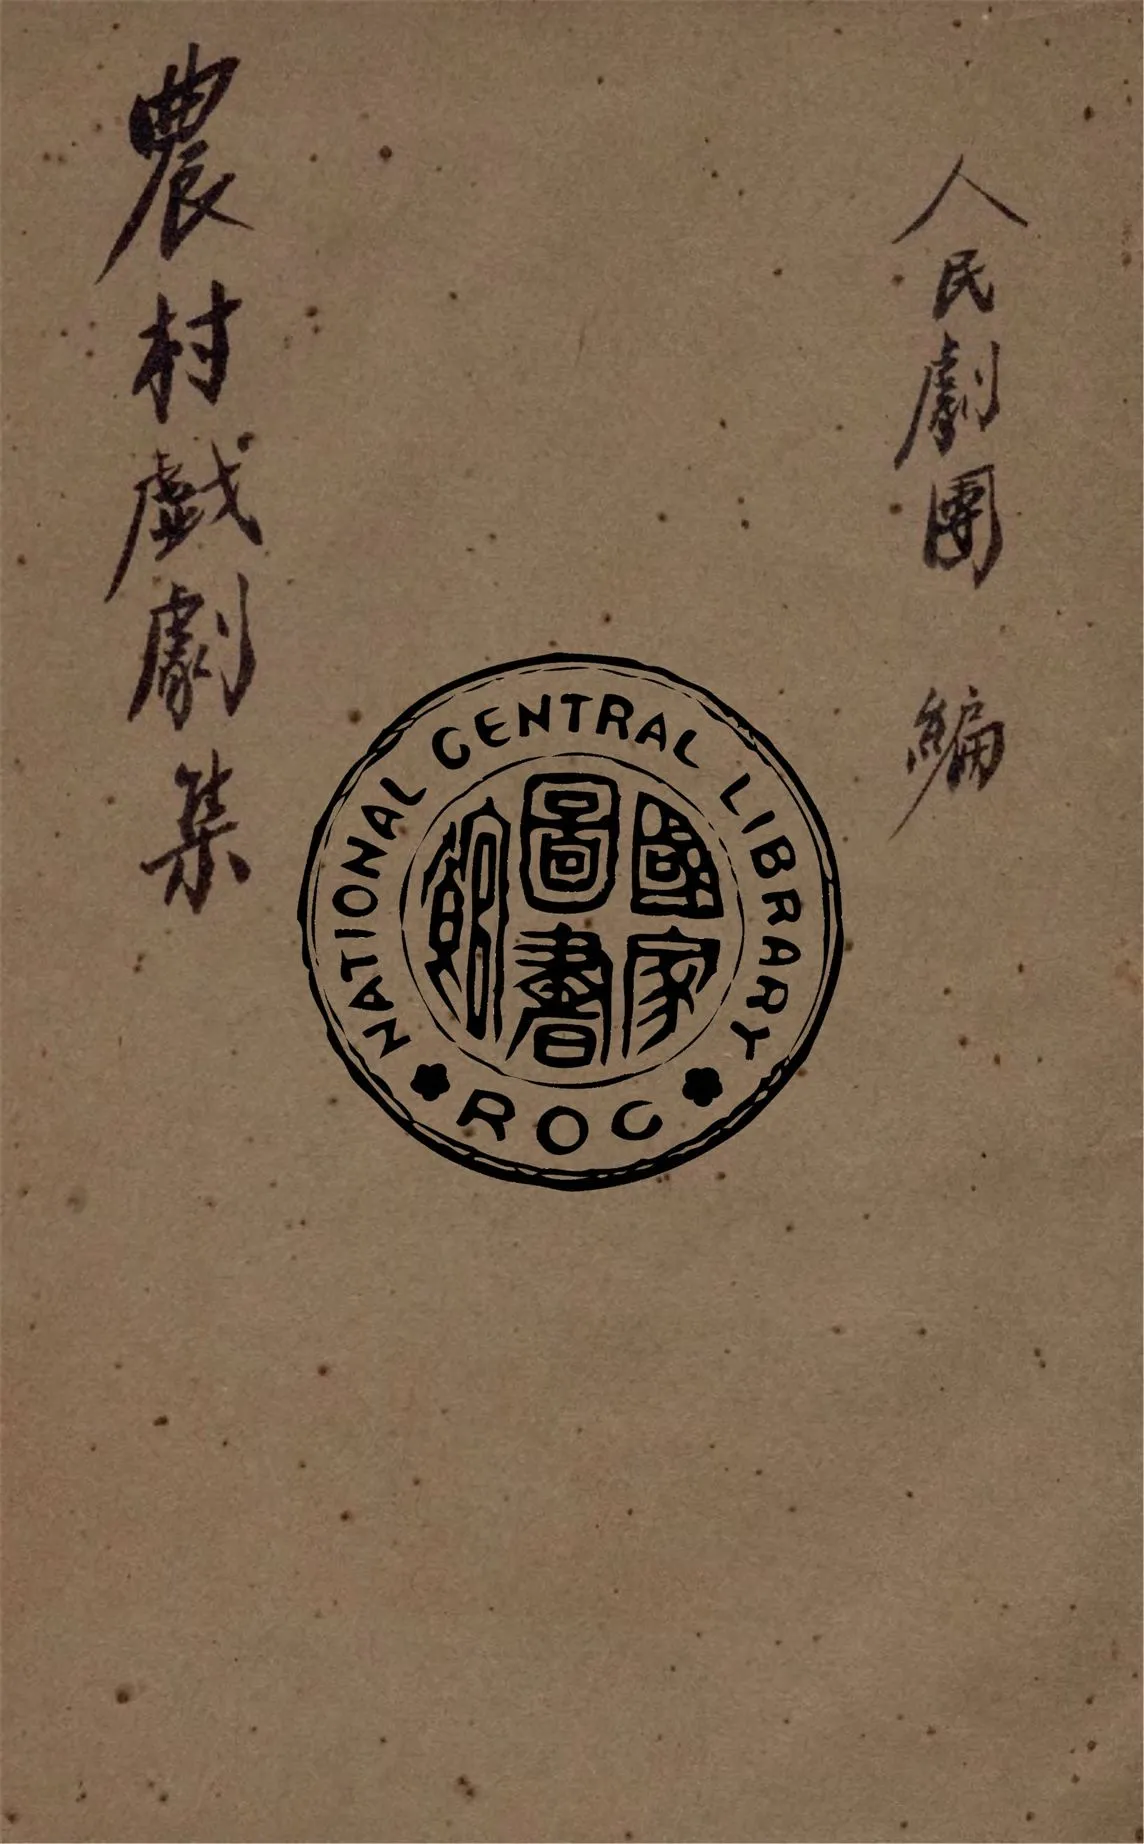 人民劇團 編
農村戲劇集
NATIONAL CENTRAL LIBRARY
國家圖書館
ROC